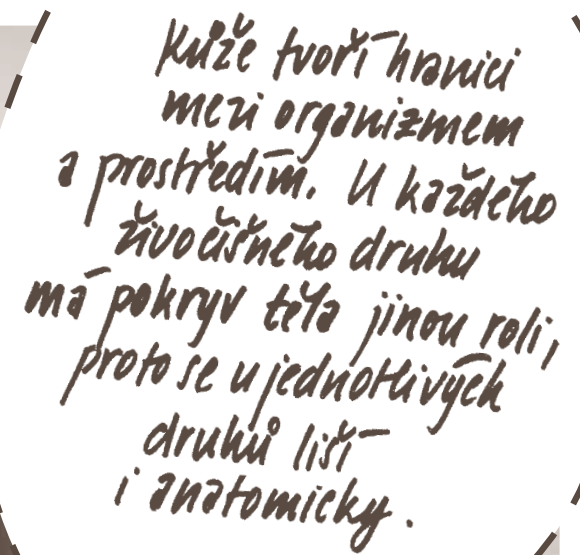 Kůže tvoří hranici
mezi organizmem
a prostředím. U každého
živočišného druhu
má pokryv těla jinou roli,
proto se u jednotlivých
druhů liší
i anatomicky.